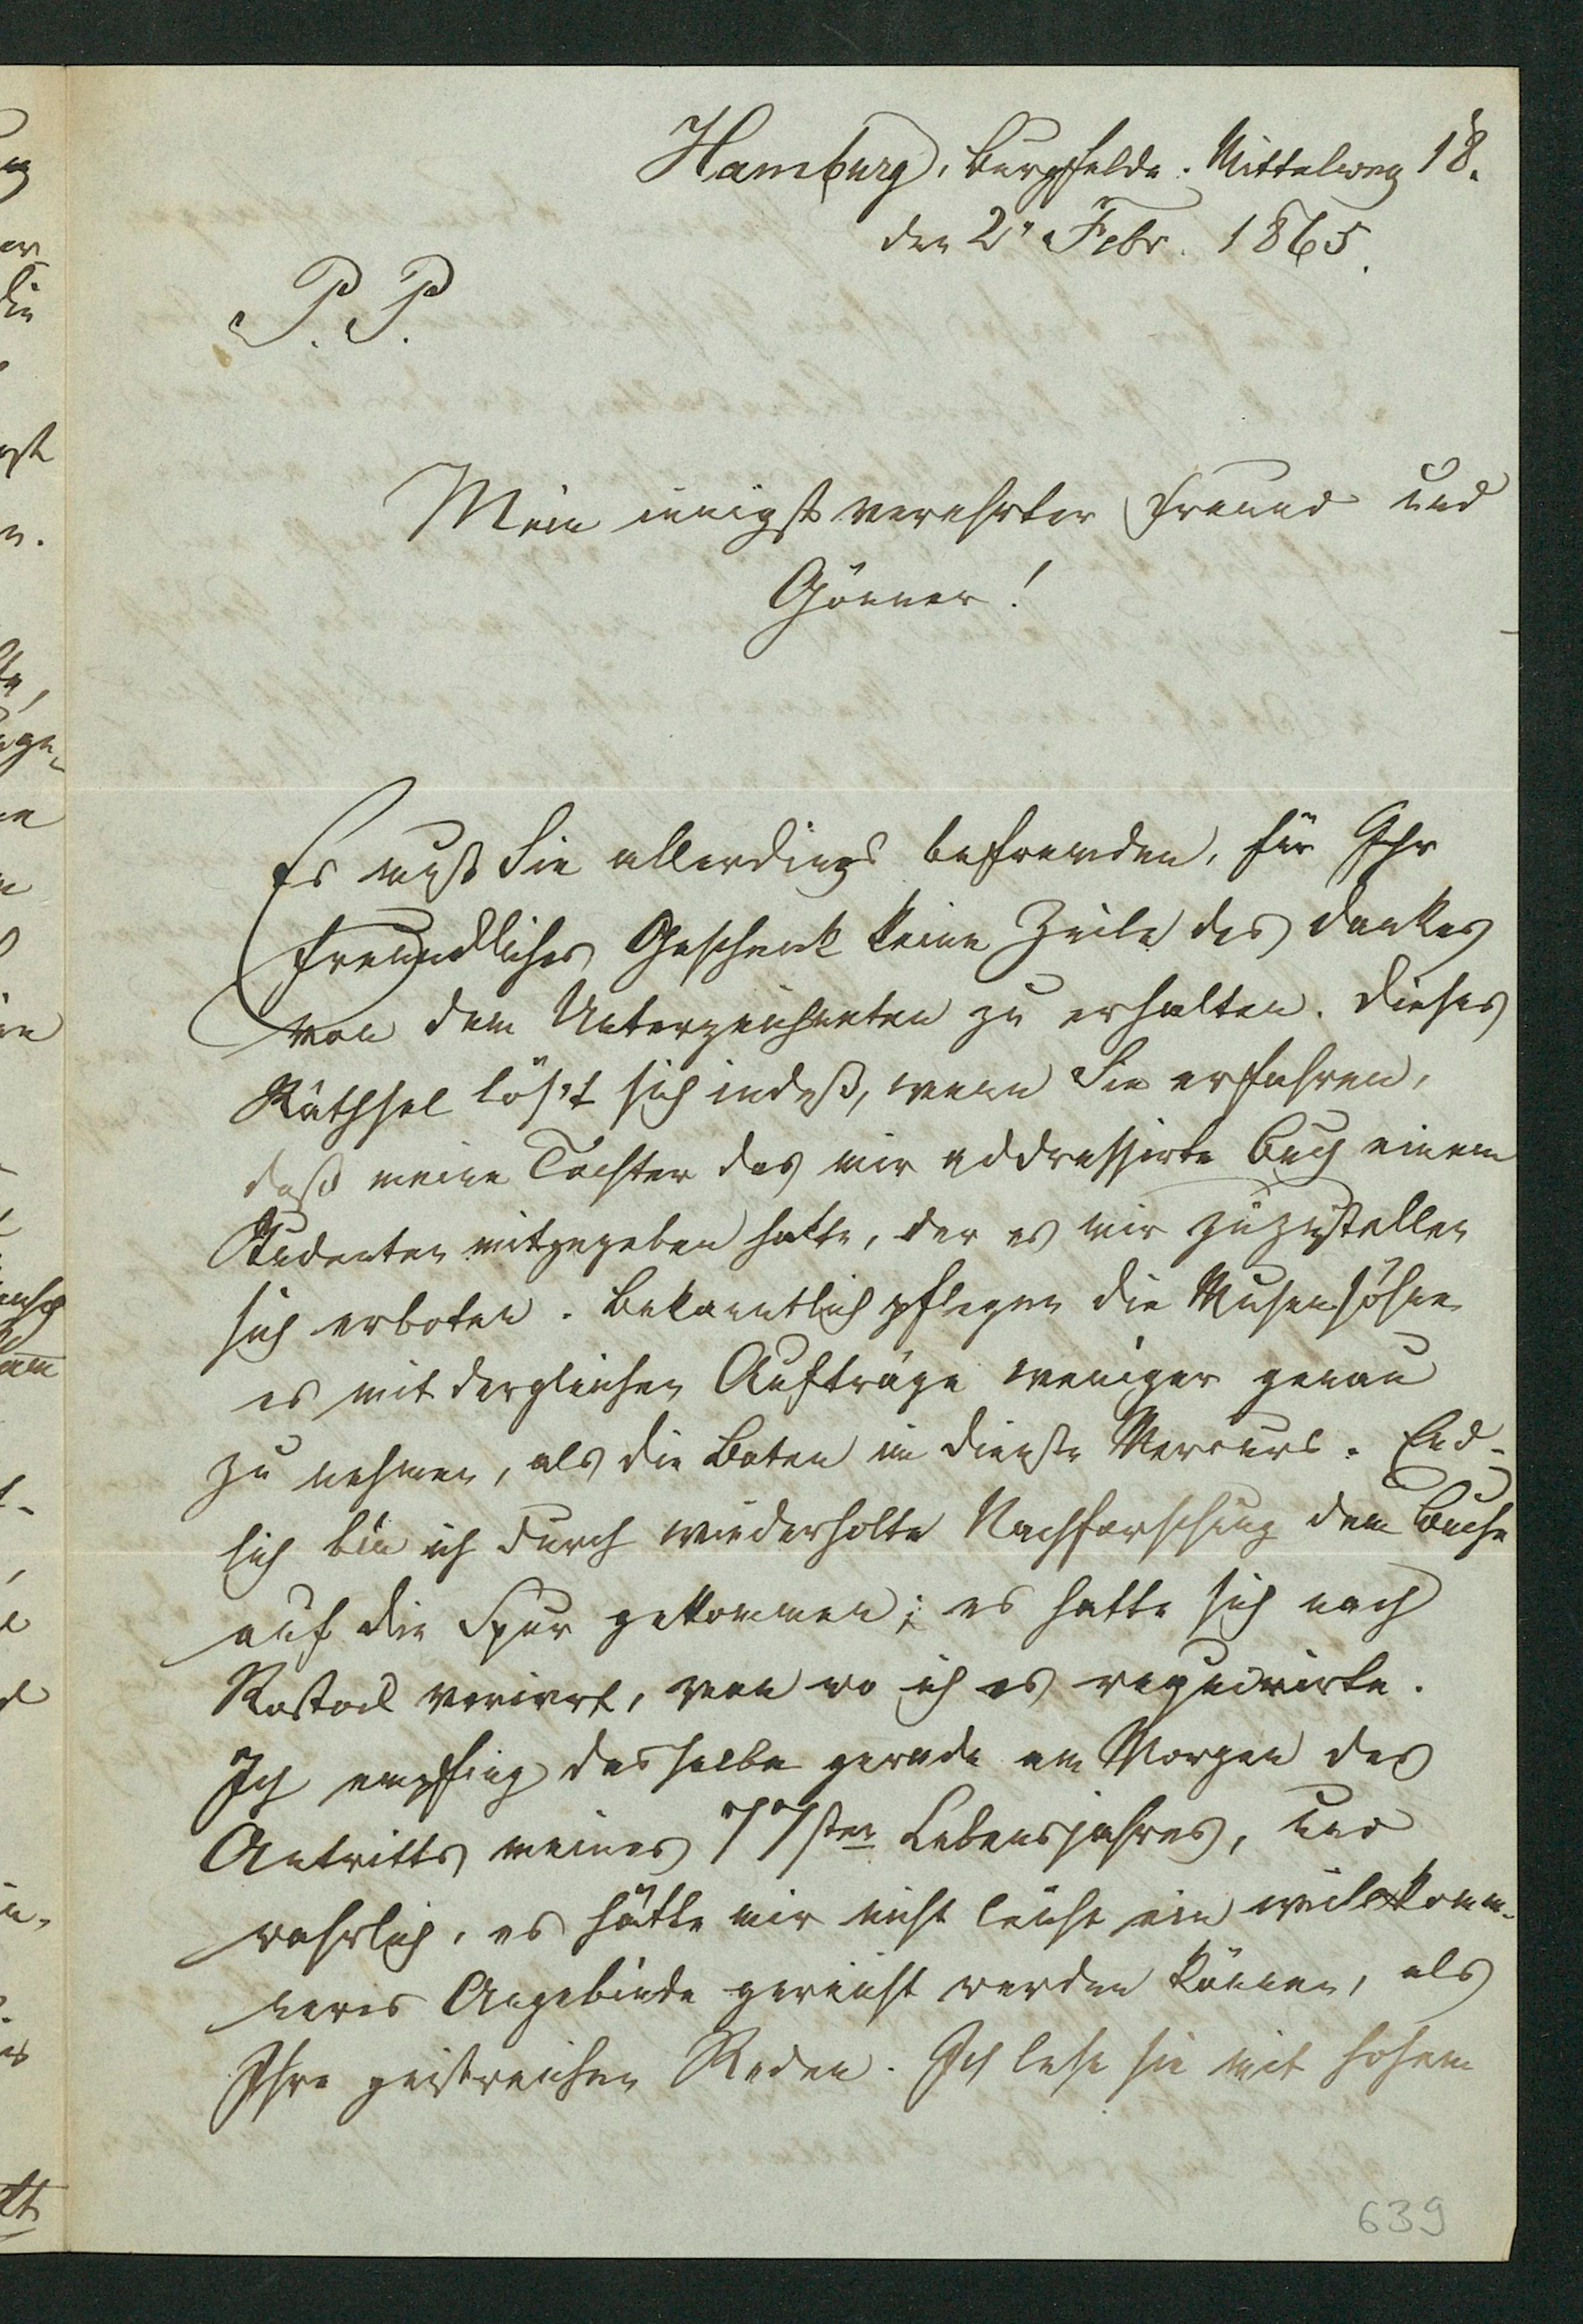 Hamburg, Burgfelde. Mittelweg 18.
den 2n Febr. 1865.
P. P.
Mein innigst verehrter Freund und
Gönner!
Es muß Sie allerdings befremden, für Ihr
freundliches Geschenk keine Zeile des Dankes
von dem Unterzeichneten zu erhalten. Dieses
Räthsel lös't sich indeß, wenn Sie erfahren,
daß meine Tochter das mir addressirte Buch einem
Studenten mitgegeben hatte, der es mir zuzustellen
sich erboten. Bekanntlich pflegen die Musensöhne
es mit dergleichen Aufträge weniger genau
zu nehmen, als die Boten im Dienste Mercurs. End-
lich bin ich durch wiederholte Nachforschung dem Buche
auf die Spur gekommen; es hatte sich nach
Rostock verirrt, von wo ich es requirirte.
Ich empfing dasselbe gerade am Morgen des
Antritts meines 77sten Lebensjahres, und
wahrlich, es hätte mir nicht leicht ein willkomm-
neres Angebinde gereicht werden können, als
Ihre geistreichen Reden. Ich lese sie mit hohem
639